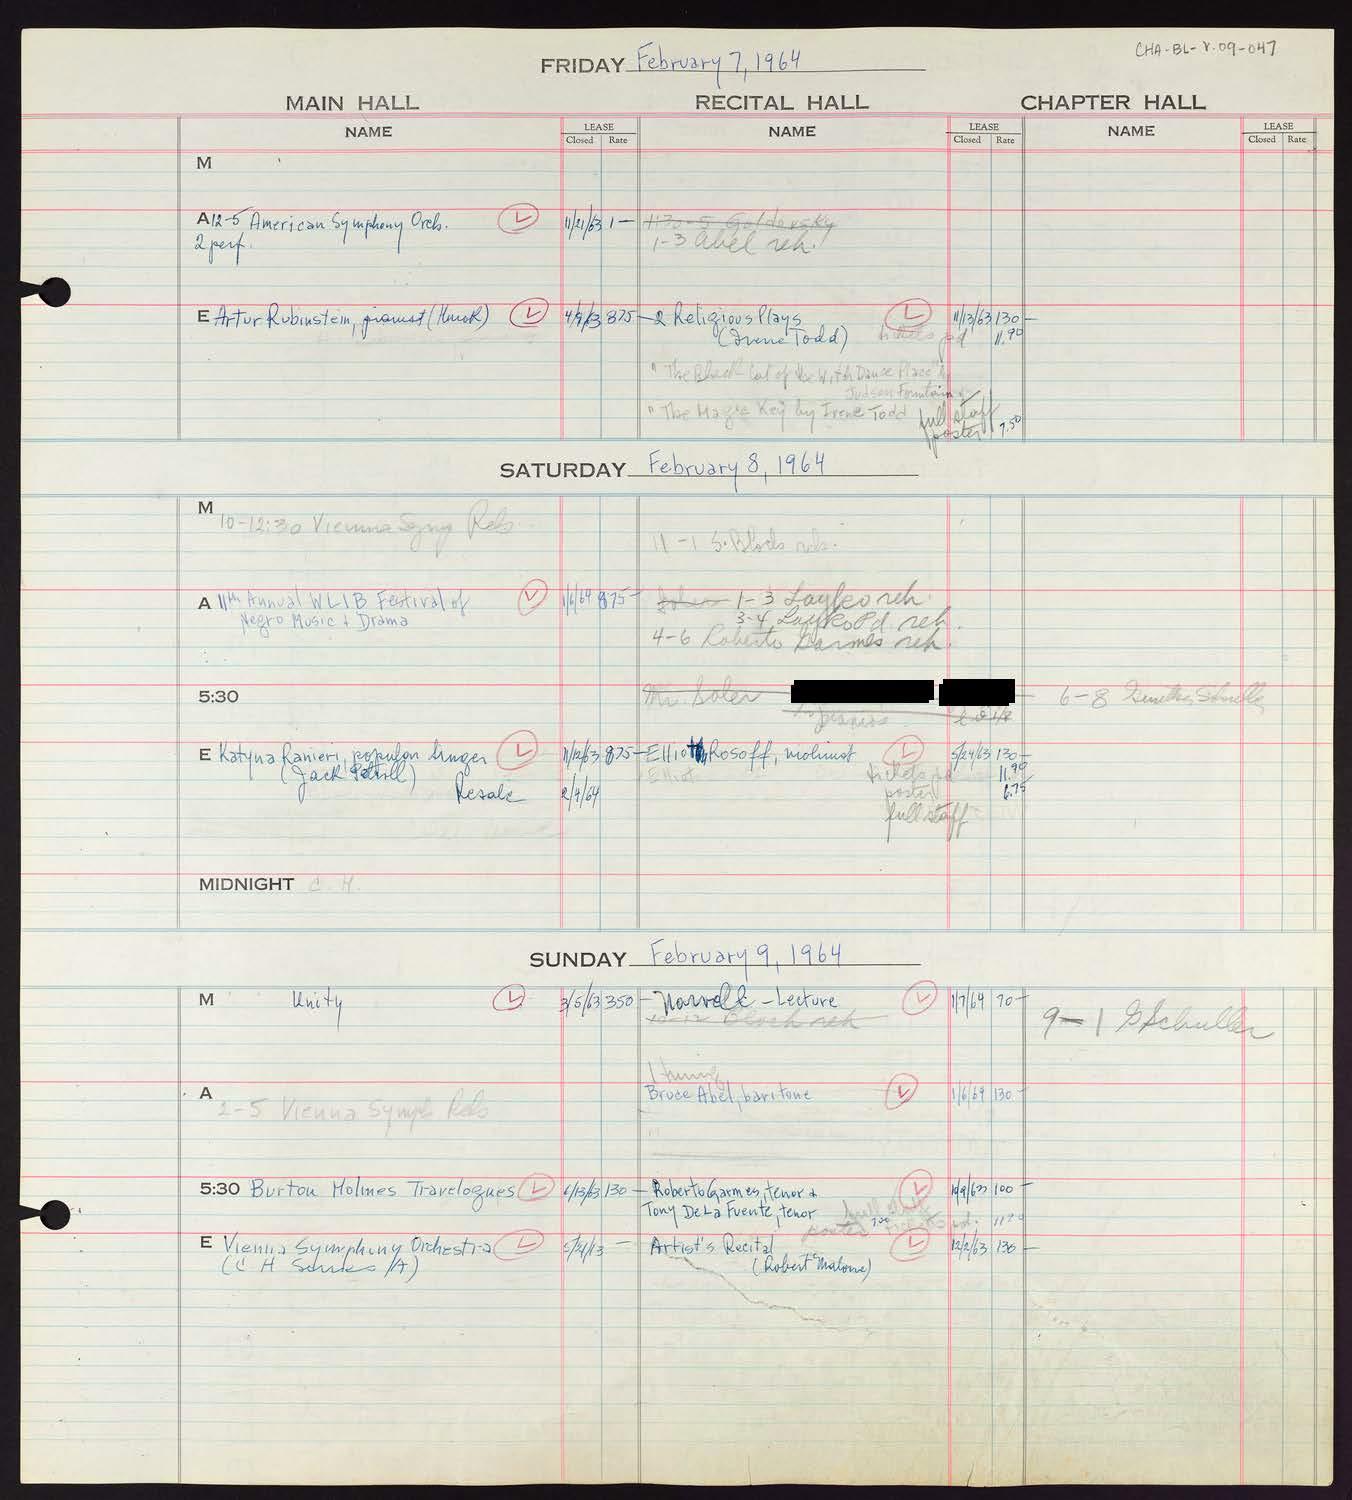 CHA-BL-V.09-047
FRIDAY February 7, 1964
MAIN HALL RECITAL HALL CHAPTER HALL
NAME LEASE Closed Rate NAME LEASE Closed Rate NAME LEASE Closed Rate
M
A 12-5 American Symphony Orch. 11/21/63 1—
2 perf.
1130-5 Goldovsky
1-3 Abel reh.
E Artur Rubinstein, pianist (Hurok) 4/9/63 875— 2 Religious Plays 11/13/63 130—
(Irene Todd) tickets pd 11.90
"The Black Cat of the Witch Dance Place" by
Judson Fountain
"The Magic Key by Irene Todd full staff
poster 7.50
SATURDAY February 8, 1964
M
10-12:30 Vienna Symp Reh
11-1 S. Blocks reh.
A 11th Annual WLIB Festival of 1/6/64 875—
Negro Music + Drama
1-3 Layko reh.
3-4 Layko Pd. reh.
4-6 Roberto Garmes reh.
5:30 Mr. Soler
6-8 Gunther Schuller
E Katyna Ranieri, popular singer 11/12/63 875— Elliott Rosoff, violinist 5/24/63 130—
Elliot tickets pd 11.90
Resale 2/4/64 poster 6.75
full staff
MIDNIGHT C. H.
SUNDAY February 9, 1964
M Unity 3/5/63 350— — Lecture 1/7/64 70—
10-12 Bloch reh
9-1 G Schuller
A 1 tuning
Bruce Abel, baritone 1/6/64 130—
2-5 Vienna Symph Reh
5:30 Burton Holmes Travelogues 6/13/63 130— Roberto Garmes, tenor + 10/9/63 100—
Tony De La Fuente, tenor full staff
poster 7.00 tickets pd. 11.90
E Vienna Symphony Orchestra Artist's Recital 12/2/63 130—
(C H Series /A) (Robert Malone)